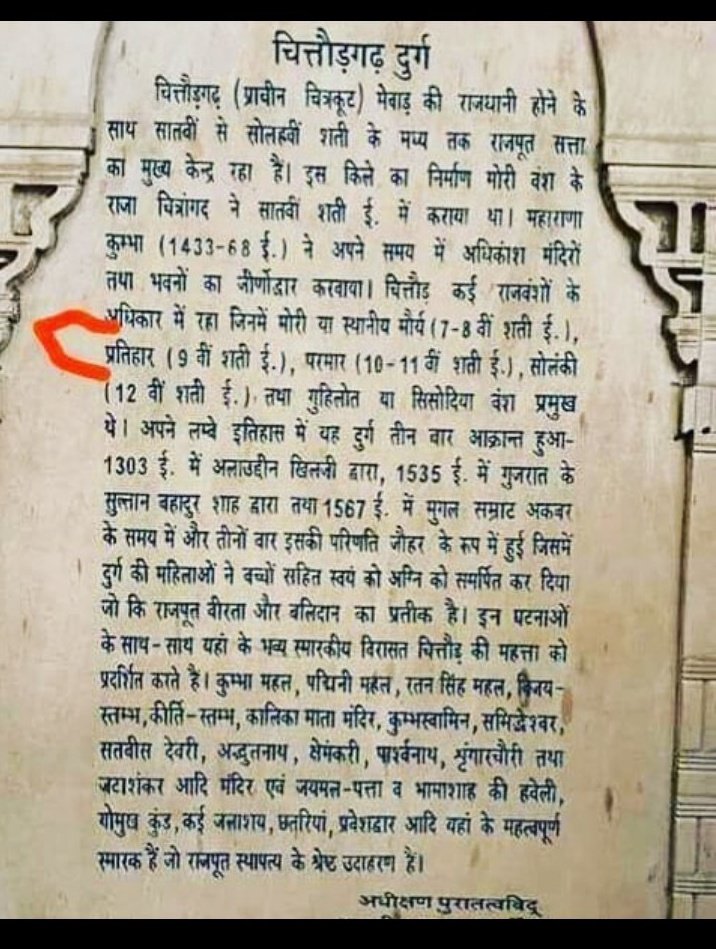 चित्तौड़गढ़ दुर्ग
चित्तौड़गढ़ (प्राचीन चित्रकूट) मेवाड़ की राजधानी होने के
साथ सातवीं से सोलहवीं शती के मध्य तक राजपूत सत्ता
का मुख्य केन्द्र रहा है। इस किले का निर्माण मोरी वंश के
राजा चित्रांगद ने सातवीं शती ई. में कराया था। महाराणा
कुम्भा (1433-68 ई.) ने अपने समय में अधिकांश मंदिरों
तथा भवनों का जीर्णोद्धार करवाया। चित्तौड़ कई राजवंशों के
अधिकार में रहा जिनमें मोरी या स्थानीय मौर्य (7-8 वीं शती ई.),
प्रतिहार (9 वीं शती ई.), परमार (10-11 वीं शती ई.), सोलंकी
(12 वीं शती ई.) तथा गुहिलोत या सिसोदिया वंश प्रमुख
थे। अपने लम्बे इतिहास में यह दुर्ग तीन बार आक्रान्त हुआ-
1303 ई. में अलाउद्दीन खिलजी द्वारा, 1535 ई. में गुजरात के
सुल्तान बहादुर शाह द्वारा तथा 1567 ई. में मुगल सम्राट अकबर
के समय में और तीनों बार इसकी परिणति जौहर के रूप में हुई जिसमें
दुर्ग की महिलाओं ने बच्चों सहित स्वयं को अग्नि को समर्पित कर दिया
जो कि राजपूत वीरता और बलिदान का प्रतीक है। इन घटनाओं
के साथ-साथ यहां के भव्य स्मारकीय विरासत चित्तौड़ की महत्ता को
प्रदर्शित करते है। कुम्भा महल, पद्मिनी महल, रतन सिंह महल, विजय-
स्तम्भ, कीर्ति-स्तम्भ, कालिका माता मंदिर, कुम्भस्वामिन, समिद्धेश्वर,
सतबीस देवरी, अद्भुतनाथ, क्षेमंकरी, पार्श्वनाथ, शृंगारचौरी तथा
जटाशंकर आदि मंदिर एवं जयमल-पत्ता व भामाशाह की हवेली,
गोमुख कुंड, कई जलाशय, छतरियां, प्रवेशद्वार आदि यहां के महत्वपूर्ण
स्मारक हैं जो राजपूत स्थापत्य के श्रेष्ठ उदाहरण है।
अधीक्षण पुरातत्वविद्